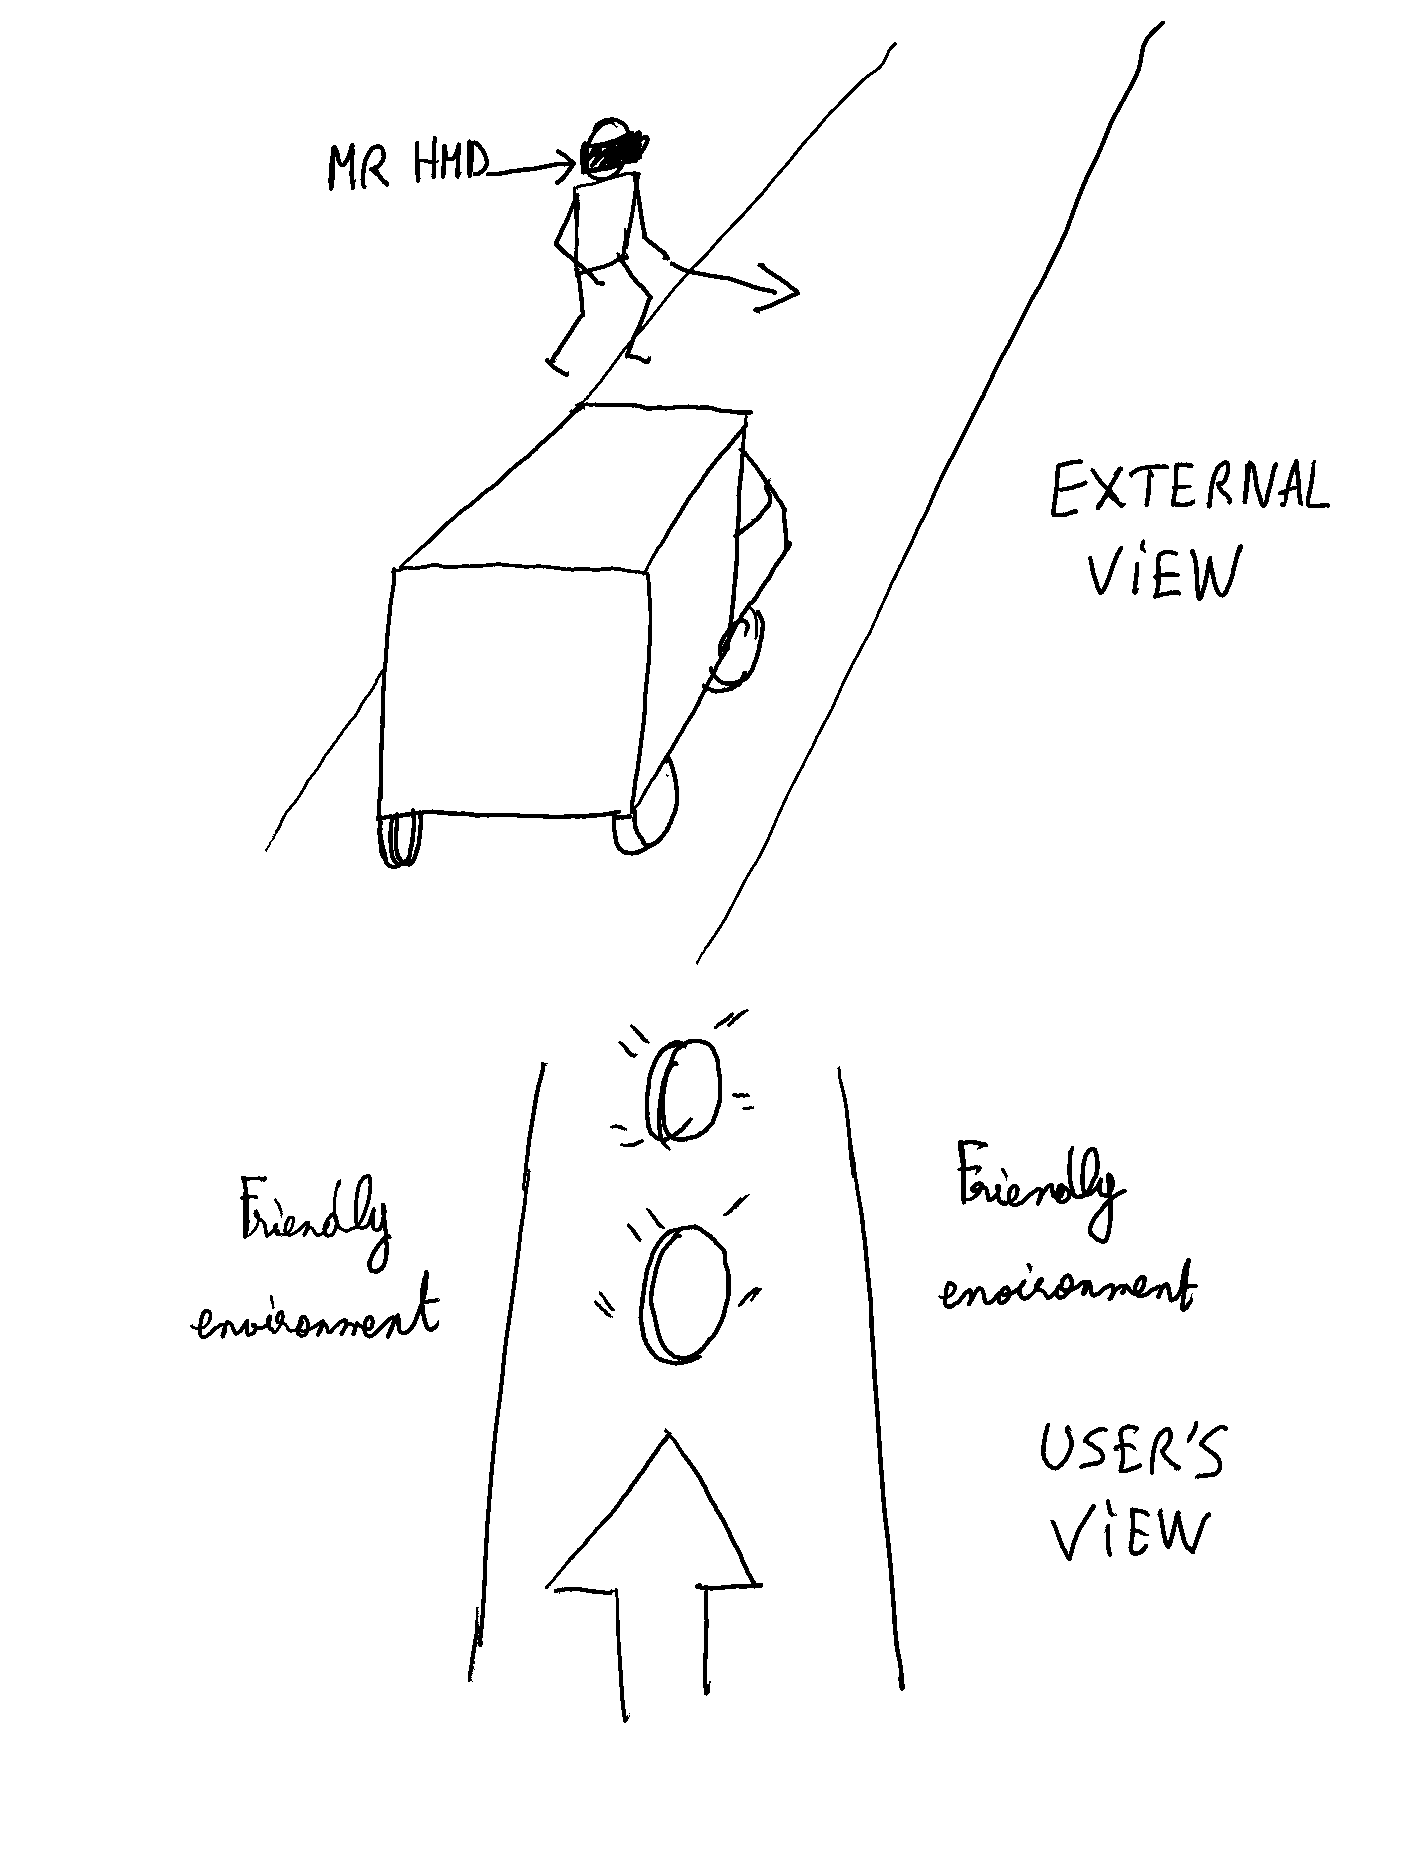 MR HMD
EXTERNAL
VIEW
Friendly
environment
Friendly
environment
USER'S
VIEW